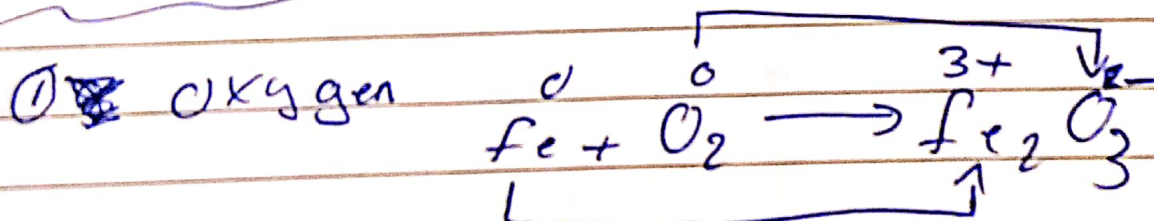 ① oxygen
0 0 3+ 2-
fe + O₂ → fe₂O₃